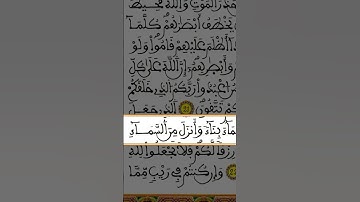 حَذَرَ الْمَوْتِ وَاللَّهُ مُحِيطٌ
يَخْطَفُ أَبْصَٰرَهُمْ كُلَّمَا
أَظْلَمَ عَلَيْهِمْ قَامُوا۟ وَلَوْ
وَأَبْصَٰرِهِمْ إِنَّ اللَّهَ عَلَىٰ كُلِّ
اعْبُدُوا۟ رَبَّكُمُ الَّذِي خَلَقَكُمْ
كُمْ تَتَّقُونَ ۝ الَّذِي جَعَلَ
مَآءَ بِنَآءً وَأَنزَلَ مِنَ السَّمَآءِ
رِزْقًا لَّكُمْ فَلَا تَجْعَلُوا۟ لِلَّهِ
وَإِن كُنتُمْ فِي رَيْبٍ مِّمَّا